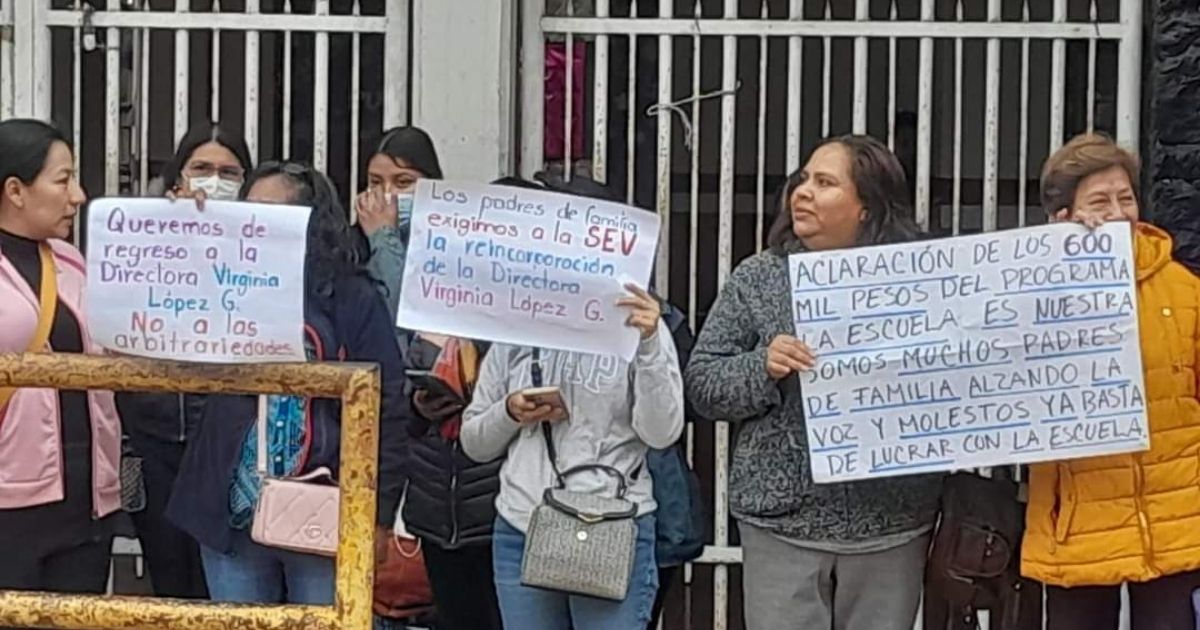 Queremos de
regreso a la
Directora Virginia
López G.
No a las
arbitrariedades
Los padres de familia
exigimos a la SEV
la reincorporación
de la Directora
Virginia López G.
ACLARACIÓN DE LOS 600
MIL PESOS DEL PROGRAMA
LA ESCUELA ES NUESTRA
SOMOS MUCHOS PADRES
DE FAMILIA ALZANDO LA
VOZ Y MOLESTOS YA BASTA
DE LUCRAR CON LA ESCUELA.